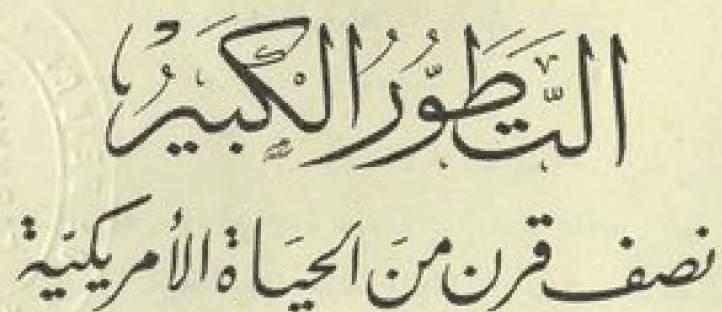 التَّطَوُّرُ الْكَبِيرُ
نصف قرن منَ الحيَاة الأمريكيَة